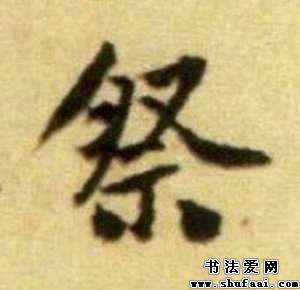 祭
书法爱网
www.shufaai.com